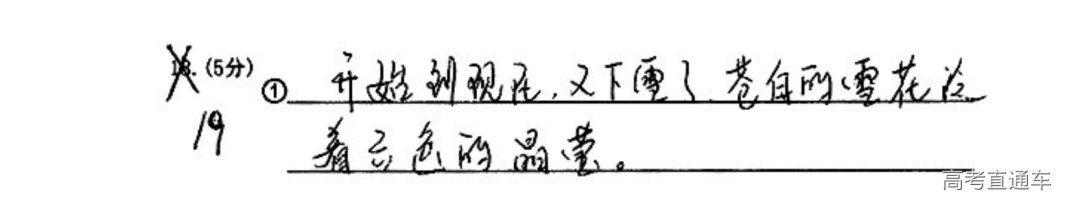 18. (5分) ① 开始到现在,又下雪了.苍白的雪花泛
19
着六色的晶莹。
高考直通车